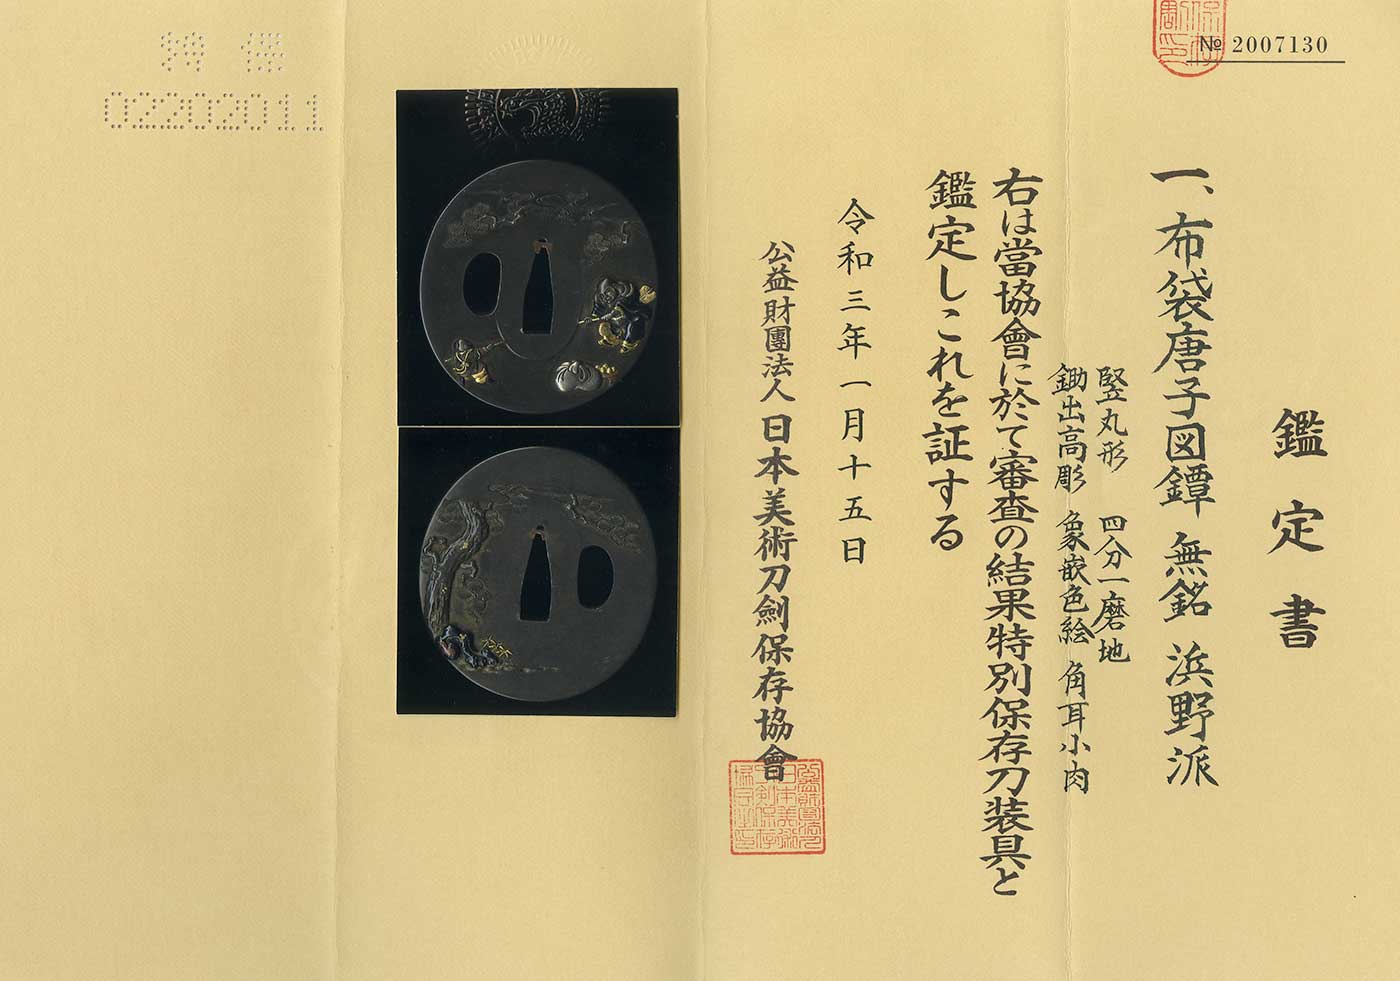 № 2007130
鑑定書
一、布袋唐子図鐔 無銘 浜野派
竪丸形 四分一磨地
鋤出高彫 象嵌色絵 角耳小肉
右は當協會に於て審査の結果特別保存刀装具と
鑑定しこれを証する
令和三年一月十五日
公益財團法人 日本美術刀劍保存協會
特保
02202011